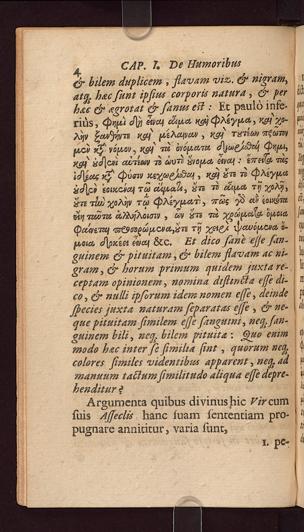 4
CAP. I. De Humoribus
& bilem duplicem, flavam viz. & nigram,
atq, hæc sunt ipsius corporis natura, & per
hæc & ægrotat & sanus est: Et paulò infe-
riùs, φημὶ δὴ εἶναι αἷμα καὶ φλέγμα, καὶ χο-
λὴν ξανθήν τε καὶ μέλαιναν, καὶ τουτέων πρῶτον
μὲν κτ̃ νόμον, καὶ τὰ ὀνόματα διωρίσθαι φημι,
καὶ οὐδενὶ αὐτέων τὸ ὠυτὸ ὄνομα εἶναι: ἔπειτα τὰς
ἰδέας κτ̃ φύσιν κεχωρίσθαι, καὶ οὔτε τὸ φλέγμα
οὐδὲν ἐοικέναι τῷ αἵματι, οὔτε τὸ αἷμα τῇ χολῇ,
οὔτε τὴν χολὴν τῷ φλέγματι, πῶς γὸ ἂν ἐοικότα
εἴη ταῦτα ἀλλήλοισιν, ὧν οὔτε τὰ χρώματα ὅμοια
φαίνεται προσορώμενα, οὔτε τῇ χειρὶ ψαυόμενα ὅ-
μοια δοκέει εἶναι &c. Et dico sanè esse san-
guinem & pituitam, & bilem flavam ac ni-
gram, & horum primum quidem juxta re-
ceptam opinionem, nomina distincta esse di-
co, & nulli ipsorum idem nomen esse, deinde
species juxta naturam separatas esse, & ne-
que pituitam similem esse sanguini, neq, san-
guinem bili, neq, bilem pituitæ: Quo enim
modo hæc inter se similia sint, quorum neq,
colores similes videntibus apparent, neq, ad
manuum tactum similitudo aliqua esse depre-
henditur?
Argumenta quibus divinus hic Vir cum
suis Asseclis hanc suam sententiam pro-
pugnare annititur, varia sunt,
1. pe-